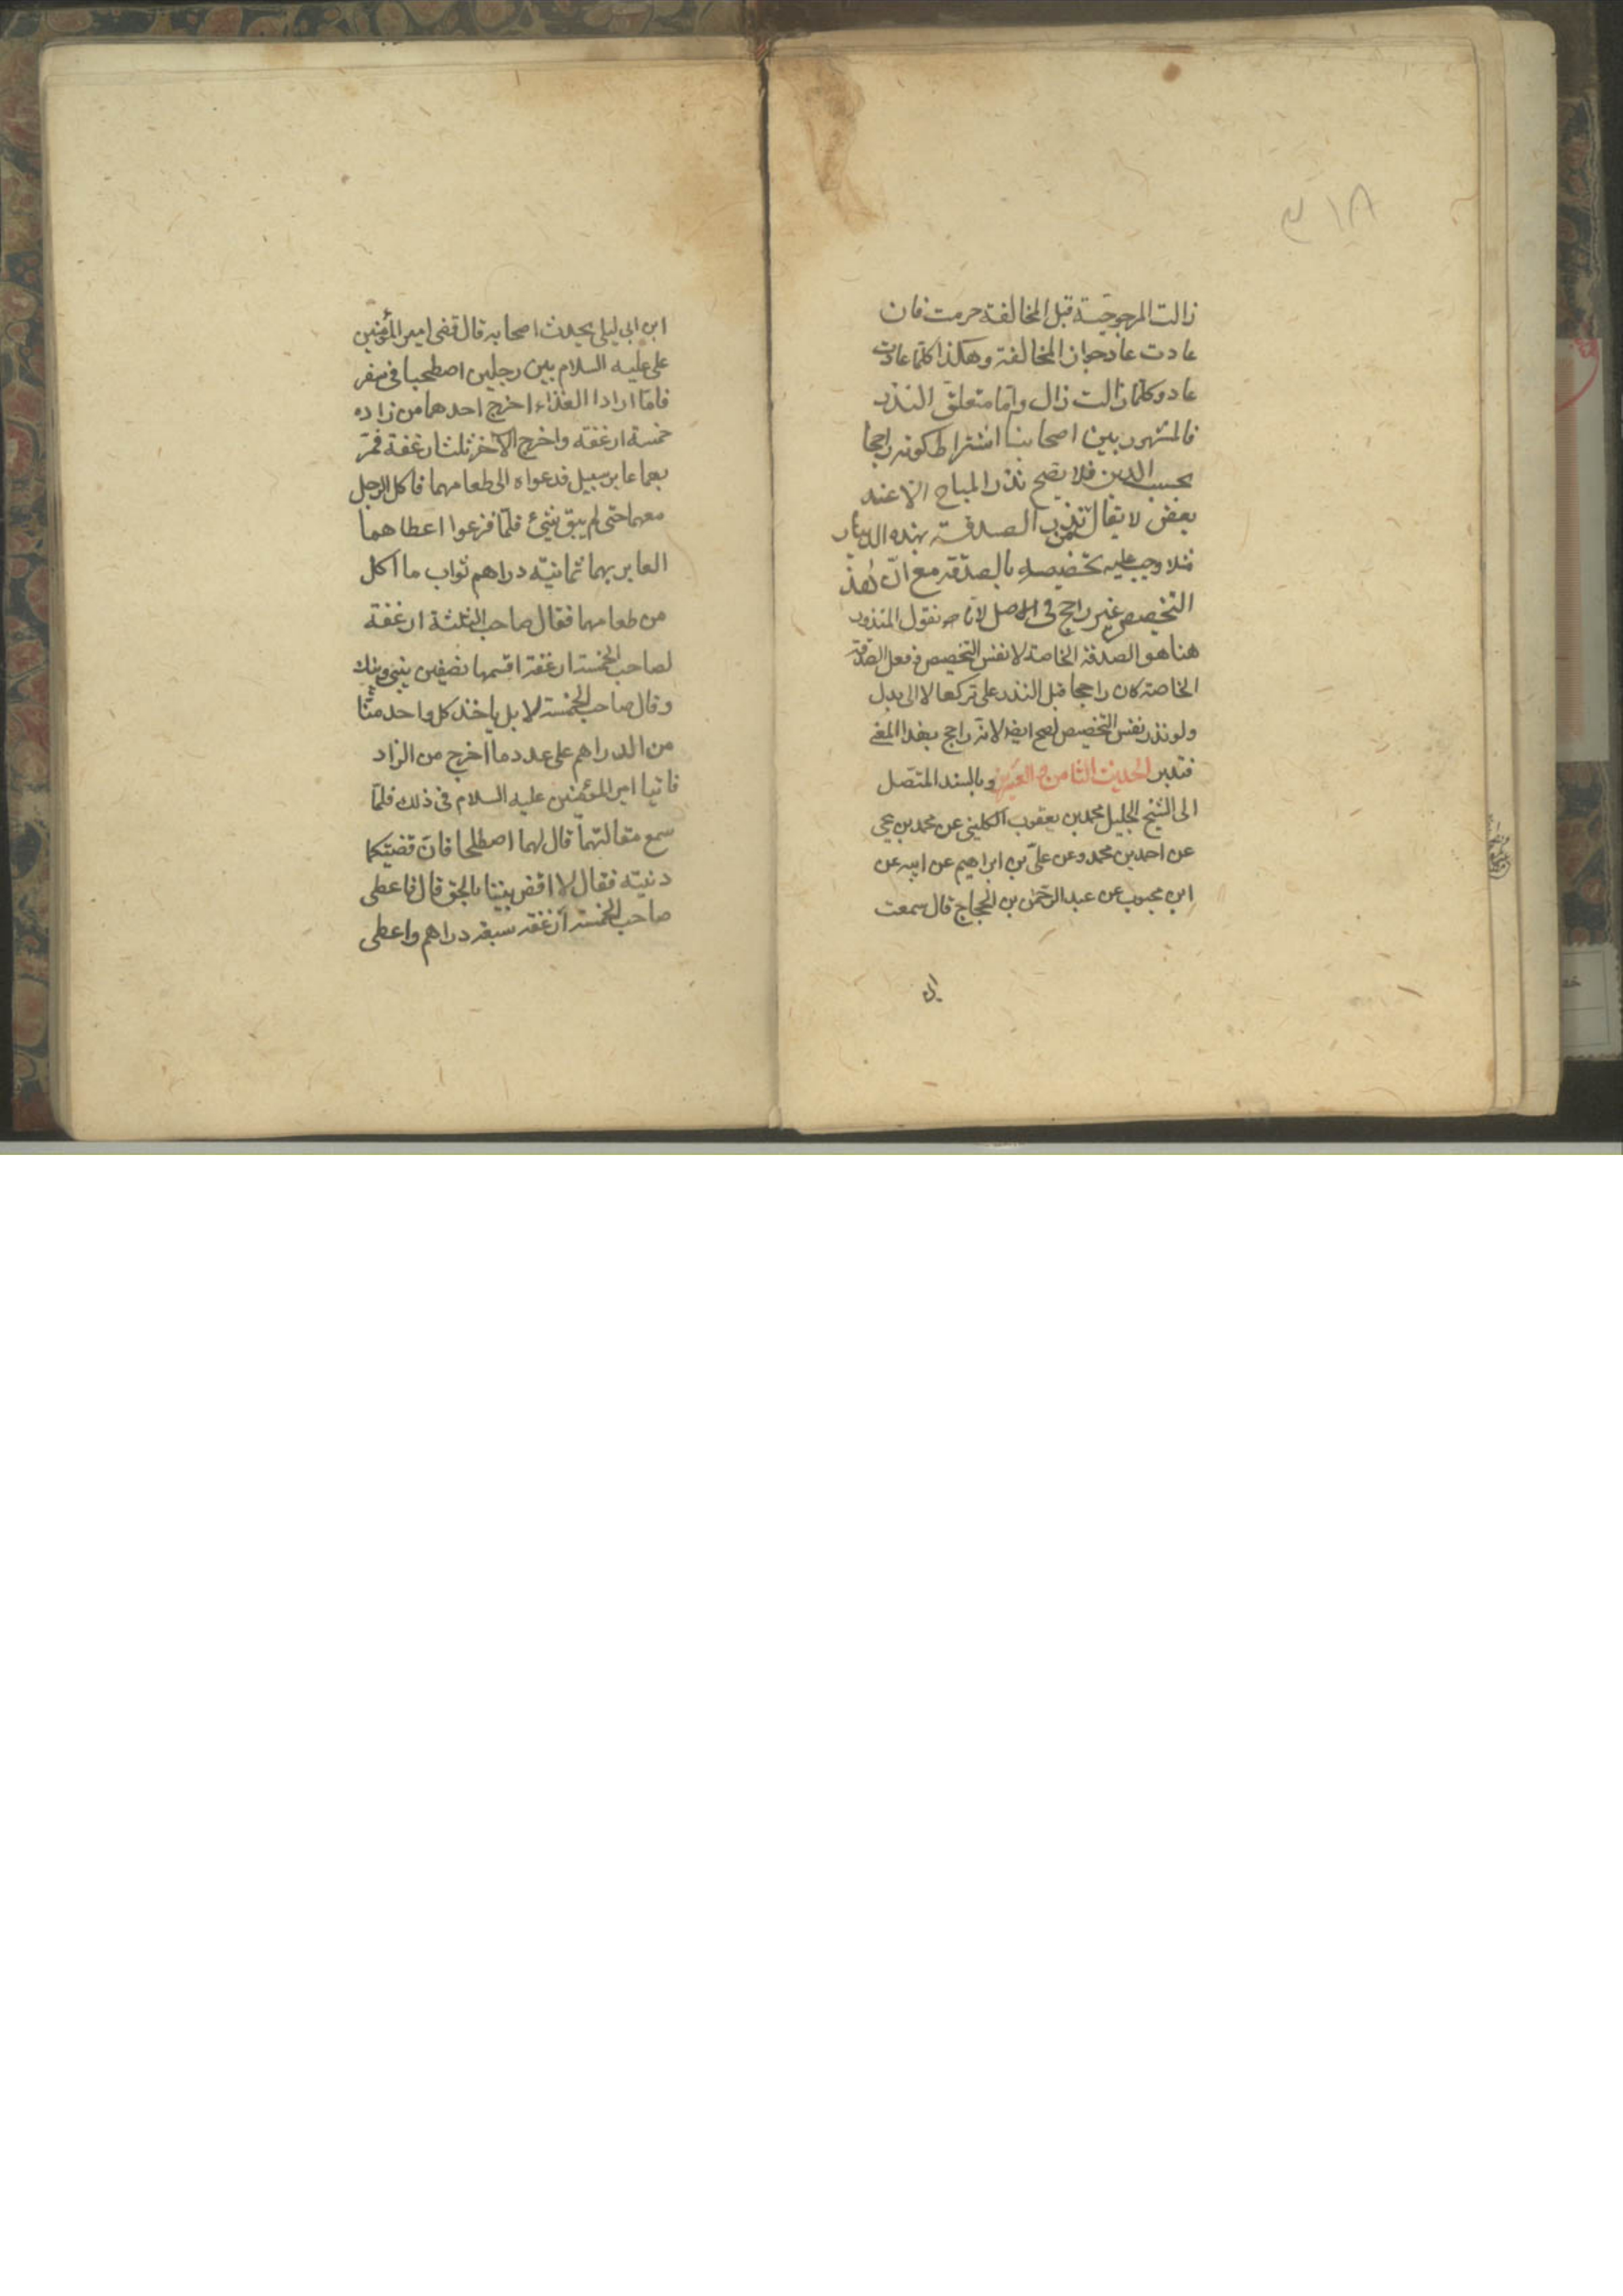 زالت المرجوحيّة قبل المخالفة حرمت فان
عادت عاد جواز المخالفة وهكذا كلّما عادت
عاد وكلّما زالت زال وامّا متعلّق النذر
فالمشهور بين اصحابنا اشتراط كونه راجحا
بحسب الدين فلا يصح نذر المباح الا عند
بعض لا يقال الصدقة بهذه الدينار
مثلا وجب عليه تخصيصه بالصدقة مع انّ هذا
التخصيص غير راجح فى الاصل لانا نقول المنذور
هنا هو الصدقة الخاصة لا نفس التخصيص وفعل الصدقة
الخاصة كان راجحا قبل النذر على تركها لا الى بدل
ولو نذر نفس التخصيص لصح ايضا لانه راجح بهذا المعنى
فتدبر الحديث الثامن و العشرون وبالسند المتصل
الى الشيخ الجليل محمد بن يعقوب الكلينى عن محمد بن يحيى
عن احمد بن محمد وعن علىّ بن ابراهيم عن ابيه عن
ابن محبوب عن عبد الرحمٰن بن الحجاج قال سمعت
ابن
ابن ابى ليلى يحدث اصحابه قال قضى امير المؤمنين
على عليه السلام بين رجلين اصطحبا فى سفر
فلمّا ارادا الغذاء اخرج احدهما من زاده
خمسة ارغفة واخرج الآخر ثلث ارغفة فمرّ
بهما عابر سبيل فدعواه الى طعامهما فاكل الرجل
معهما حتى لم يبق شئ فلمّا فرغوا اعطاهما
العابر بهما ثمانية دراهم ثواب ما اكل
من طعامهما فقال صاحب الثلثة ارغفة
لصاحب الخمسة ارغفة اقسمها نصفين بينى وبينك
وقال صاحب الخمسة لا بل ياخذ كل واحد منّا
من الدراهم على عدد ما اخرج من الزاد
فاتيا امير المؤمنين عليه السلام فى ذلك فلمّا
سمع مقالتهما قال لهما اصطلحا فانّ قضيّتكما
دنيّة فقال لا اقض بيننا بالحق قال فاعطى
صاحب الخمسة ارغفة سبعة دراهم واعطى